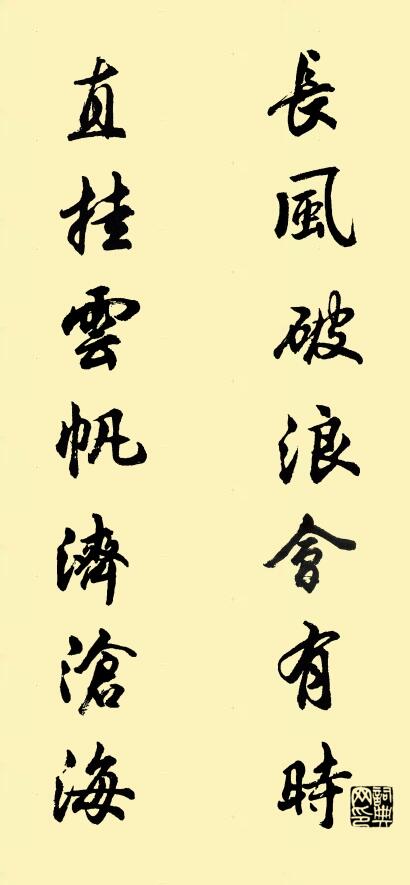 長風破浪會有時
直挂雲帆濟滄海
詞典網印